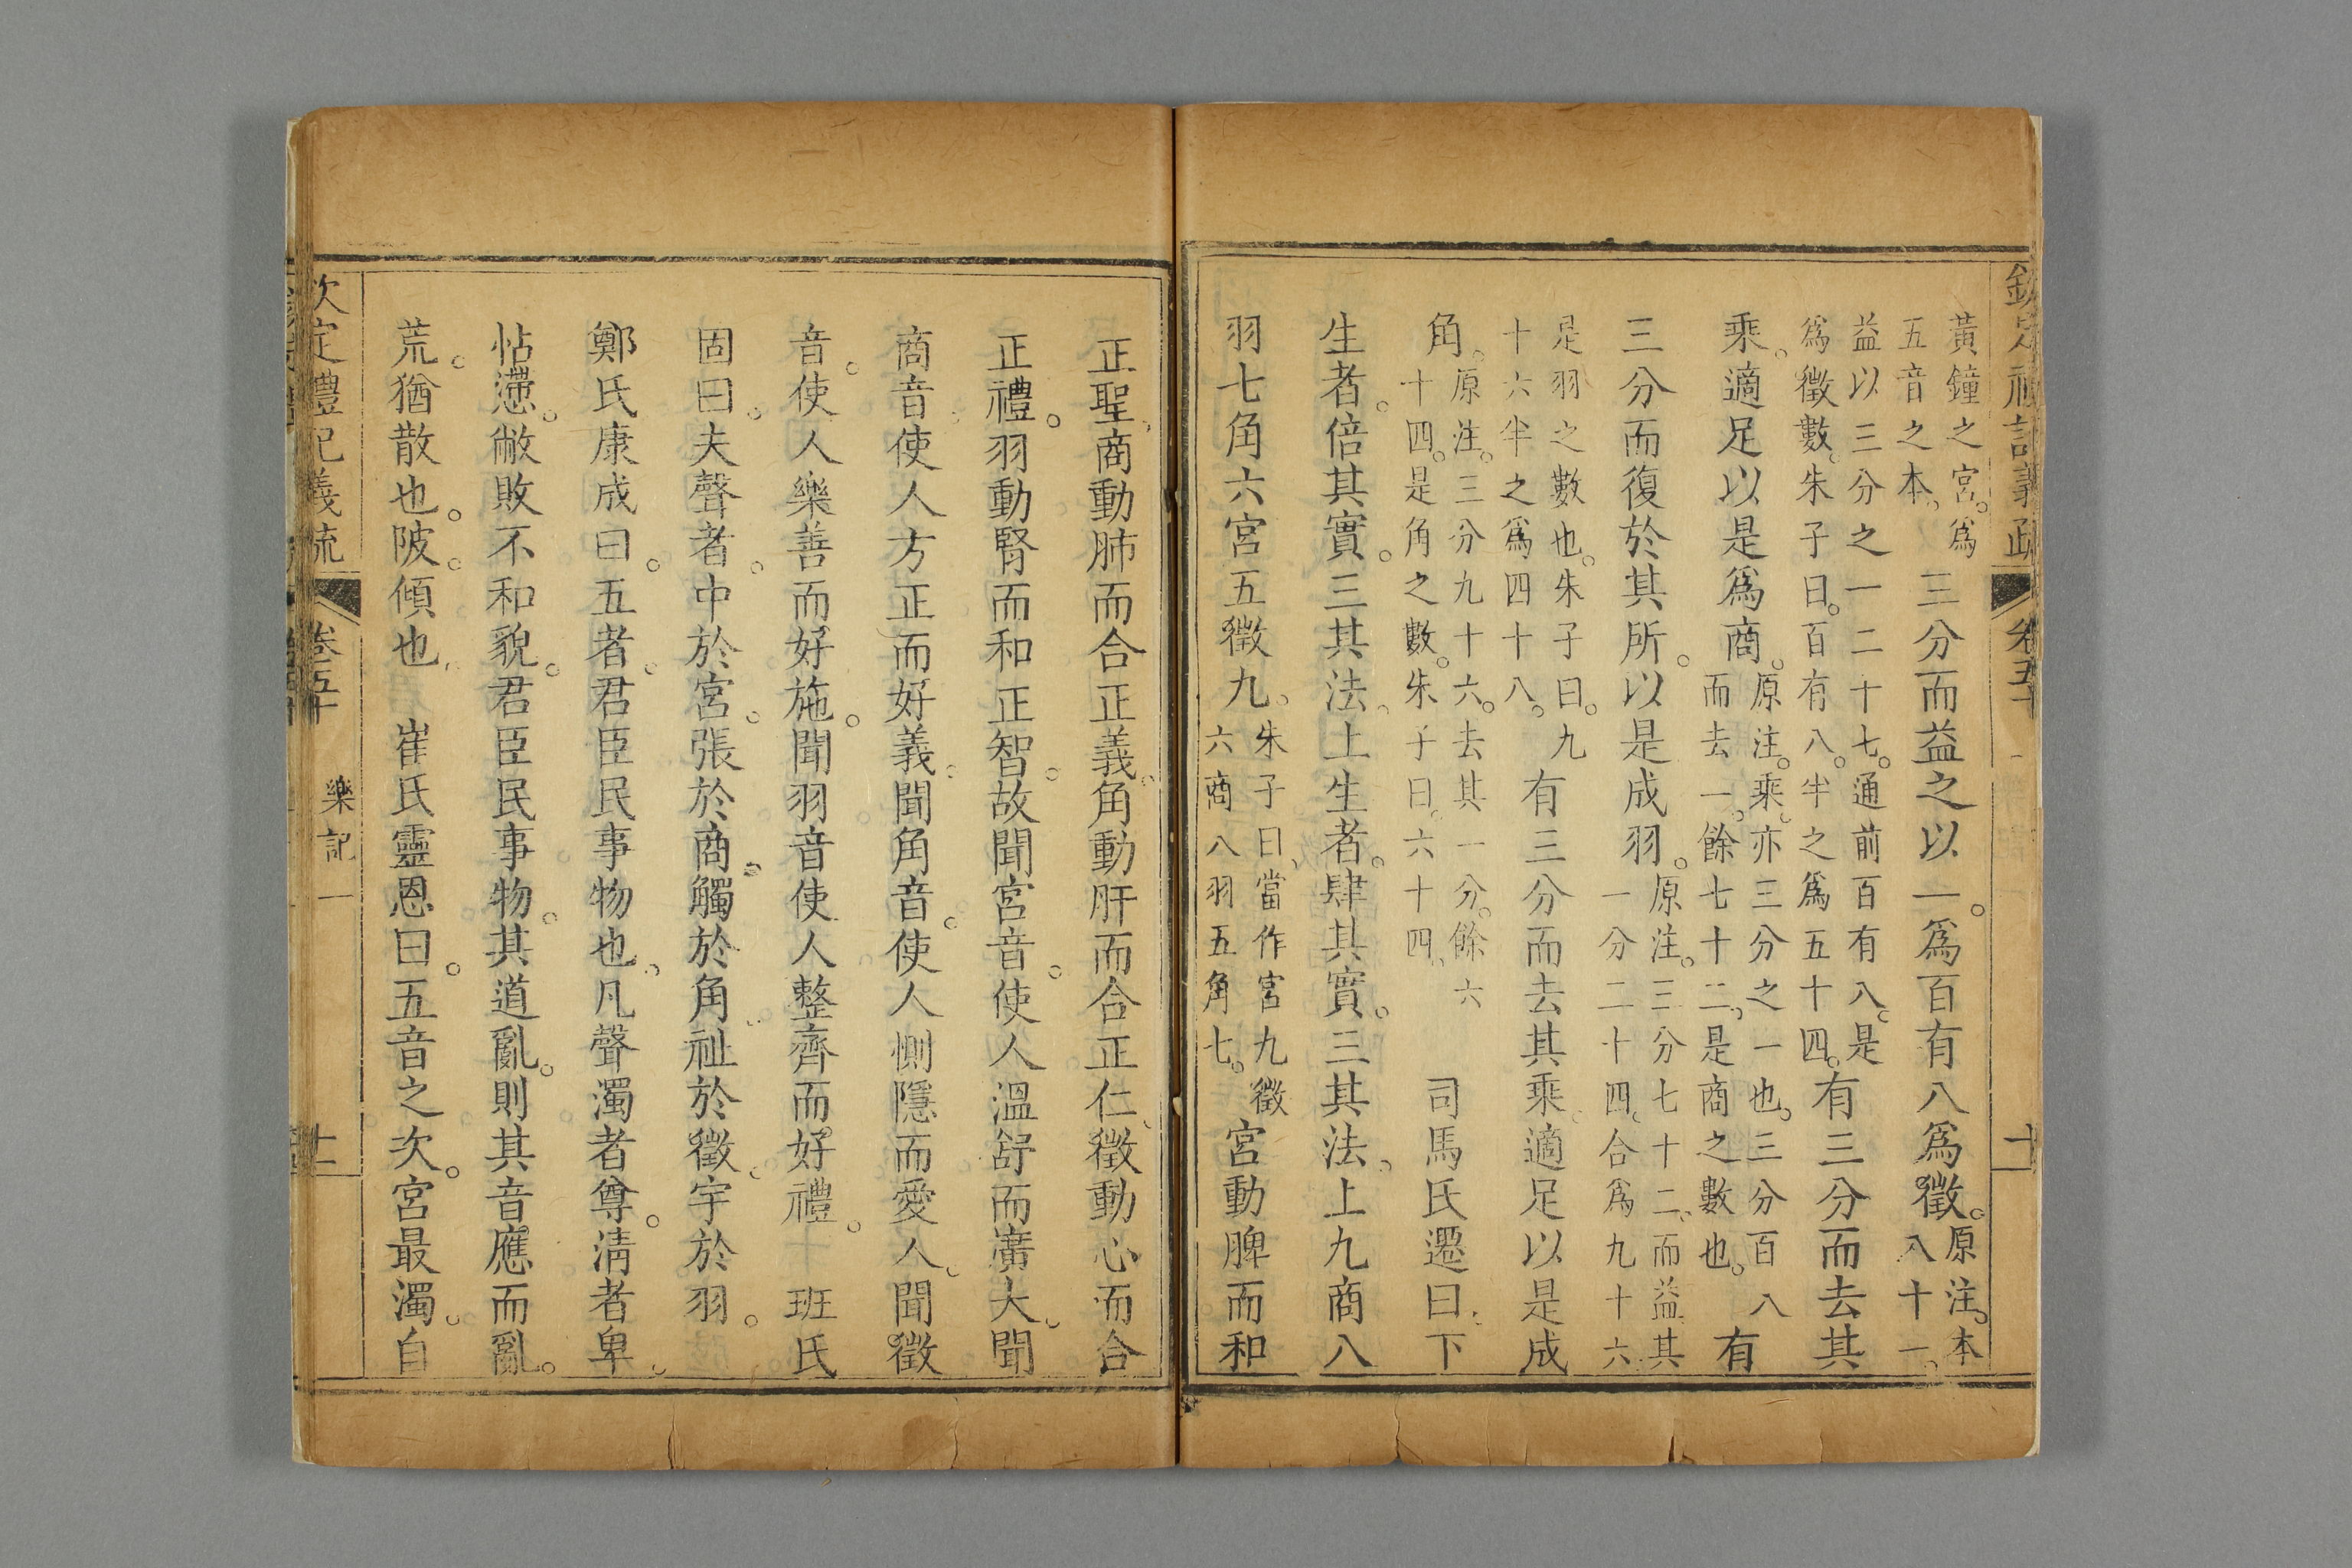 欽定禮記義疏 卷五十 十
黃鐘之宮。爲
五音之本。
三分而益之以一。爲百有八爲徵。
原注。本
八十一。
益以三分之一二十七。通前百有八。是
爲徵數。朱子曰。百有八。半之爲五十四。
有三分而去其
乘。適足以是爲商。
原注。乘。亦三分之一也。三分百八
而去一。餘七十二。是商之數也。
有
三分而復於其所。以是成羽。
原注。三分七十二。而益其
一分二十四。合爲九十六
是羽之數也。朱子曰。九
十六半之爲四十八。
有三分而去其乘。適足以是成
角。
原注。三分九十六。去其一分。餘六
十四。是角之數。朱子曰。六十四。
司馬氏遷曰。下
生者。倍其實。三其法。上生者。肆其實。三其法。上九商八
羽七角六宮五徵九。
朱子曰。當作宮九徵
六商八羽五角七。
宮動脾而和
正聖。商動肺而合正義。角動肝而合正仁。徵動心而合
正禮。羽動腎而和正智。故聞宮音。使人溫舒而廣大。聞
商音。使人方正而好義。聞角音。使人惻隱而愛人。聞徵
音。使人樂善而好施。聞羽音。使人整齊而好禮。 班氏
固曰。夫聲者。中於宮。張於商。觸於角。祉於徵。宇於羽。
鄭氏康成曰。五者。君臣民事物也。凡聲濁者尊。淸者卑。
怗懘。敝敗不和貌。君臣民事物。其道亂。則其音應而亂。
荒。猶散也。陂。傾也。 崔氏靈恩曰。五音之次。宮最濁。自
欽定禮記義疏 卷五十 樂記一 十一